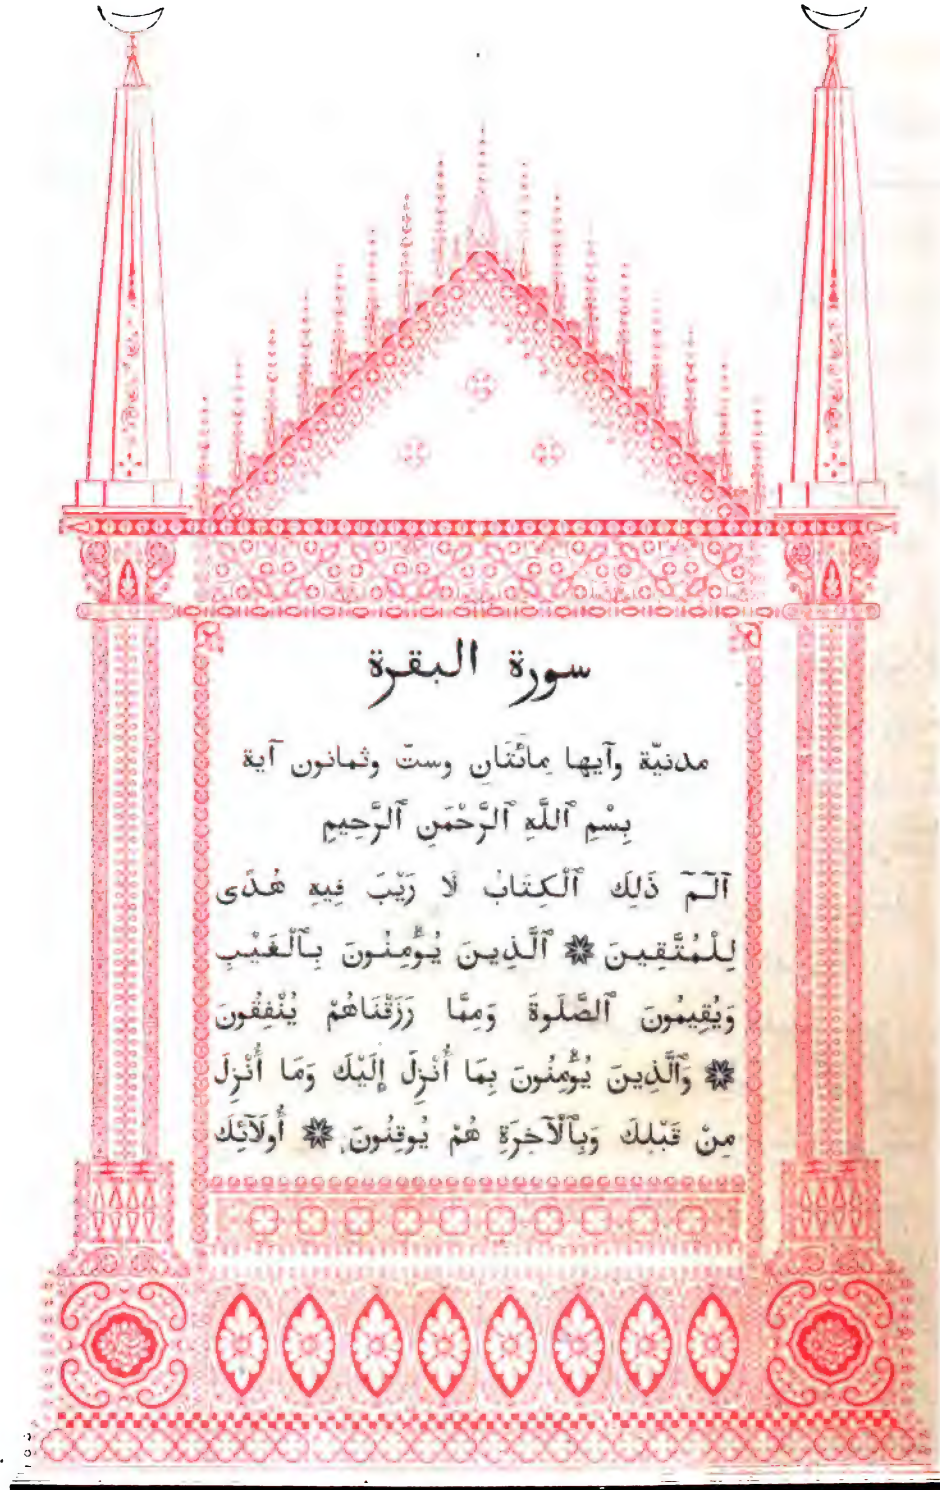 سورة البقرة
مدنيّة وآيها مائَتَانِ وستّ وثمانون آية
بِسْمِ ٱللَّهِ ٱلرَّحْمَنِ ٱلرَّحِيمِ
آلـمٓ ذَلِكَ ٱلْكِتَابُ لَا رَيْبَ فِيهِ هُدًى
لِلْمُتَّقِينَ ✵ ٱلَّذِينَ يُؤْمِنُونَ بِٱلْغَيْبِ
وَيُقِيمُونَ ٱلصَّلَوةَ وَمِمَّا رَزَقْنَاهُمْ يُنْفِقُونَ
✵ وَٱلَّذِينَ يُؤْمِنُونَ بِمَا أُنْزِلَ إِلَيْكَ وَمَا أُنْزِلَ
مِنْ قَبْلِكَ وَبِٱلْآخِرَةِ هُمْ يُوقِنُونَ ✵ أُولَآئِكَ